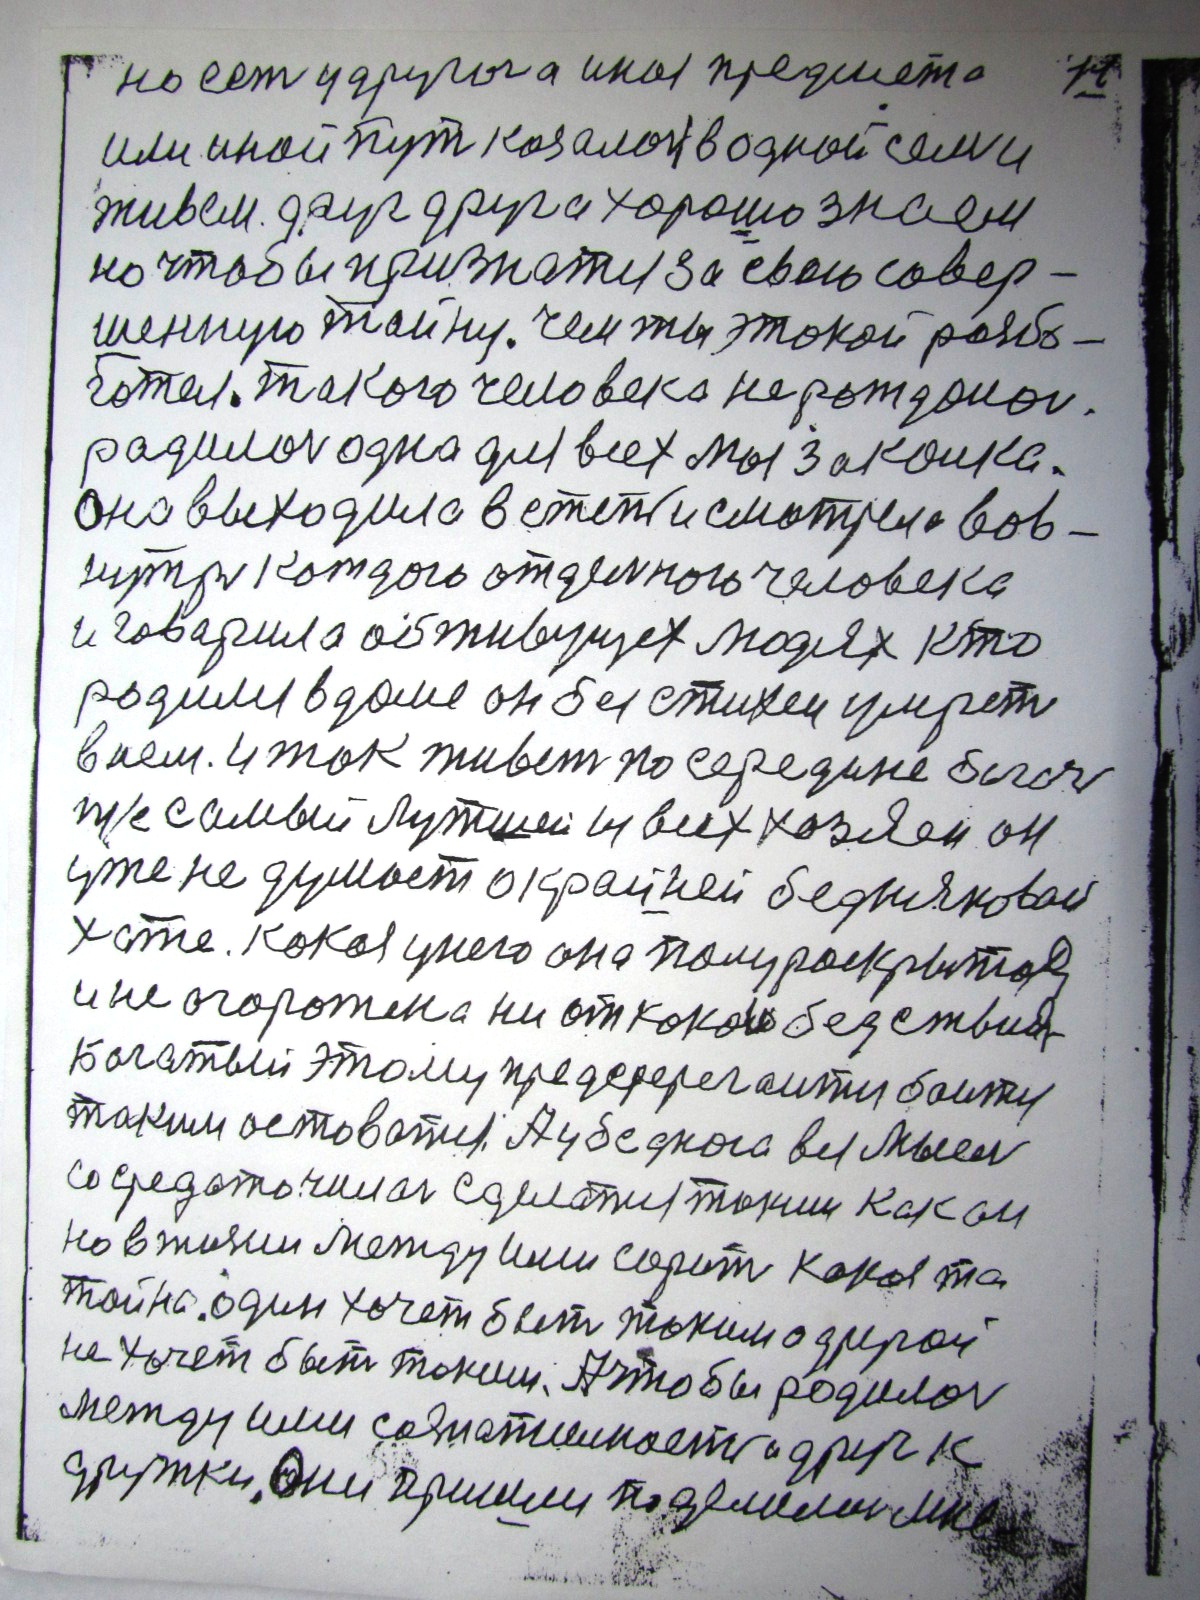 но есть у другога иная предмета 14
или иной путь казалось в одной семи
живем. друг друга хорошо знаем
но чтобы признатися за свою совер-
шенную тайну. чем ты этокой разбо-
готел. такого человека не рождалось.
радилось одна для всех мы закоика.
Она выходила в степь и смотрела вов-
нутрь каждого отдельного человека
и говарила об живущех людях кто
родился в доме он был стихеи умереть
в нем. и так живеть по середине богач
же самый лутшей и всех хозяен он
уже не думает о крайней бедняковай
хате. какая у него она полураскрытая
и не огорожена ни от какой бедствия
Богатый этому предсерегаится боится
таким остоватся. А у беднога вся мысль
сосредоточилась сделатся таким как он
но в жизни между ими сорить какая та
тайна. один хочет быть таким а другой
не хочет быть таким. А чтобы родилось
между ими сознательность и друг к
дружки. Они пришли поделились мне